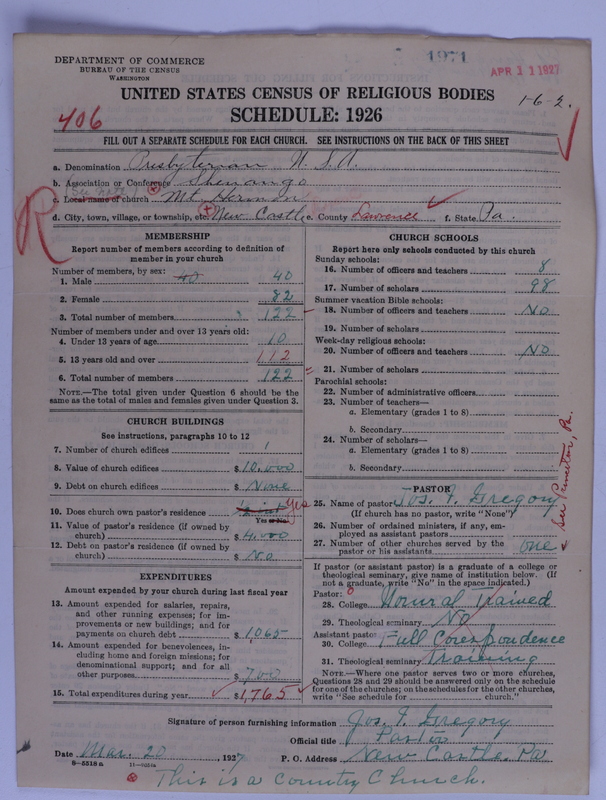 DEPARTMENT OF COMMERCE
BUREAU OF THE CENSUS
WASHINGTON
1971
APR 11 1927
UNITED STATES CENSUS OF RELIGIOUS BODIES
1-6-2.
406
SCHEDULE: 1926
FILL OUT A SEPARATE SCHEDULE FOR EACH CHURCH. SEE INSTRUCTIONS ON THE BACK OF THIS SHEET
a. Denomination Presbyterian U. S. A.
b. Association or Conference Shenango
(See note)
c. Local name of church Mt. Hermon
d. City, town, village, or township, etc. New Castle e. County Lawrence f. State Pa.
R
MEMBERSHIP
Report number of members according to definition of member in your church
Number of members, by sex:
1. Male 40 40
2. Female 82
3. Total number of members 122
Number of members under and over 13 years old:
4. Under 13 years of age 10
5. 13 years old and over 112
6. Total number of members 122
NOTE.—The total given under Question 6 should be the same as the total of males and females given under Question 3.
CHURCH BUILDINGS
See instructions, paragraphs 10 to 12
7. Number of church edifices 1
8. Value of church edifices $ 10,000
9. Debt on church edifices $ None
10. Does church own pastor's residence Yes
Yes or No
11. Value of pastor's residence (if owned by church) $ 4,000
12. Debt on pastor's residence (if owned by church) $ No
EXPENDITURES
Amount expended by your church during last fiscal year
13. Amount expended for salaries, repairs, and other running expenses; for improvements or new buildings; and for payments on church debt $ 1065
14. Amount expended for benevolences, including home and foreign missions; for denominational support; and for all other purposes $ 700
15. Total expenditures during year $ 1,765
CHURCH SCHOOLS
Report here only schools conducted by this church
Sunday schools:
16. Number of officers and teachers 8
17. Number of scholars 98
Summer vacation Bible schools:
18. Number of officers and teachers No
19. Number of scholars
Week-day religious schools:
20. Number of officers and teachers No
21. Number of scholars
Parochial schools:
22. Number of administrative officers
23. Number of teachers—
a. Elementary (grades 1 to 8)
b. Secondary
24. Number of scholars—
a. Elementary (grades 1 to 8)
b. Secondary
PASTOR
25. Name of pastor Jos. F. Gregory
(If church has no pastor, write "None")
26. Number of ordained ministers, if any, employed as assistant pastors
27. Number of other churches served by the pastor or his assistants one
If pastor (or assistant pastor) is a graduate of a college or theological seminary, give name of institution below. (If not a graduate, write "No" in the space indicated.)
Pastor:
28. College Trained
29. Theological seminary No
Assistant pastor
30. College Full Corespondence
31. Theological seminary Training
NOTE.—Where one pastor serves two or more churches, Questions 28 and 29 should be answered only on the schedule for one of the churches; on the schedules for the other churches, write "See schedule for church."
Signature of person furnishing information Jos. F. Gregory
Official title Pastor
Date Mar. 20, 1927 P. O. Address New Castle, Pa
8—5518 a
This is a country Church.